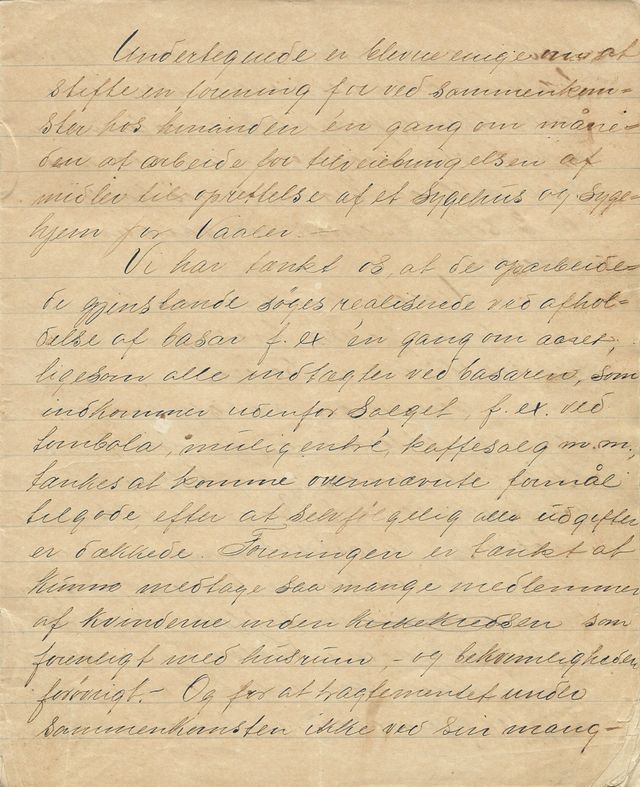 Undertegnede er blevne enige om at
stifte en forening for ved sammenkom-
ster hos hinanden én gang om måne-
den at arbeide for tilveiebringelsen af
midler til oprettelse af et Sygehus og Syge-
hjem for Vaaler. —
Vi har tænkt os, at de oparbeide-
de gjenstande søges realiserede ved afhol-
delse af basar f. ex. én gang om aaret,
ligesom alle indtægter ved basaren, som
indkommer udenfor salget, f. ex. ved
tombola, mulig entré, kaffesalg m.m.,
tænkes at komme ovennævnte formål
tilgode efter at selvfølgelig alle udgifter
er dækkede. Foreningen er tænkt at
kunne medtage saa mange medlemmer
af kvinderne inden kirkekredsen som
foreneligt med husrum, - og bekvemligheden
forøvrigt. - Og for at tragtementet under
sammenkomsten ikke ved sin mang-